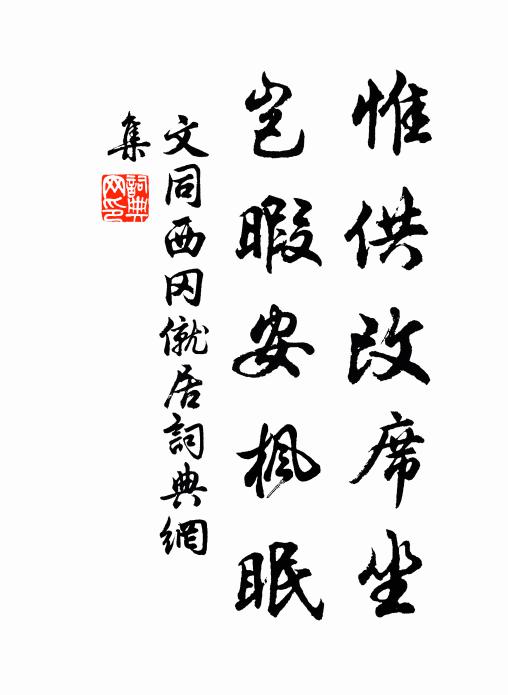 惟供改席坐
岂暇安楓眠
文同西冈僦居詞典網
集
詞典
网印